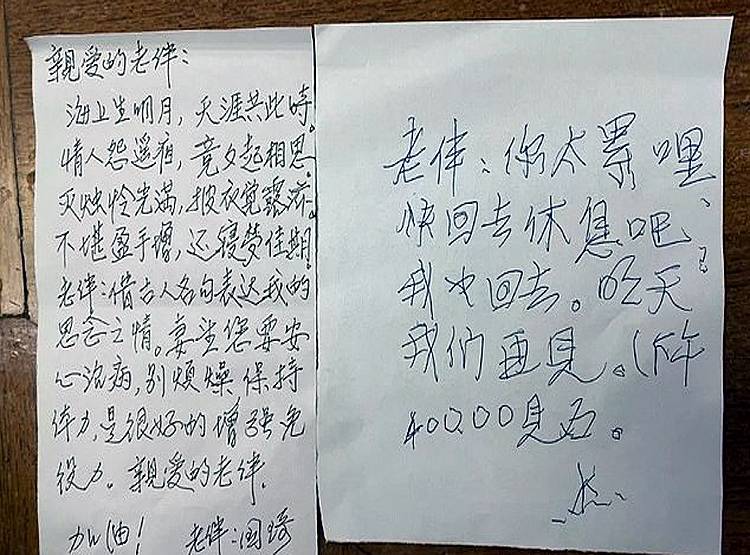 親爱的老伴：
海上生明月，天涯共此時。
情人怨遥夜，竟夕起相思。
灭烛怜光满，披衣觉露滋。
不堪盈手增，还寝梦佳期。
老伴：借古人名句表达我的
思念之情。妻望您要安
心治病，别烦燥保持
体力，是很好的增强免
疫力。親爱的老伴.
加油！ 老伴：国琦
老伴：你太累哩、
快回去休息吧、
我也回去。明天
我们再見。(下午
400.00見面。